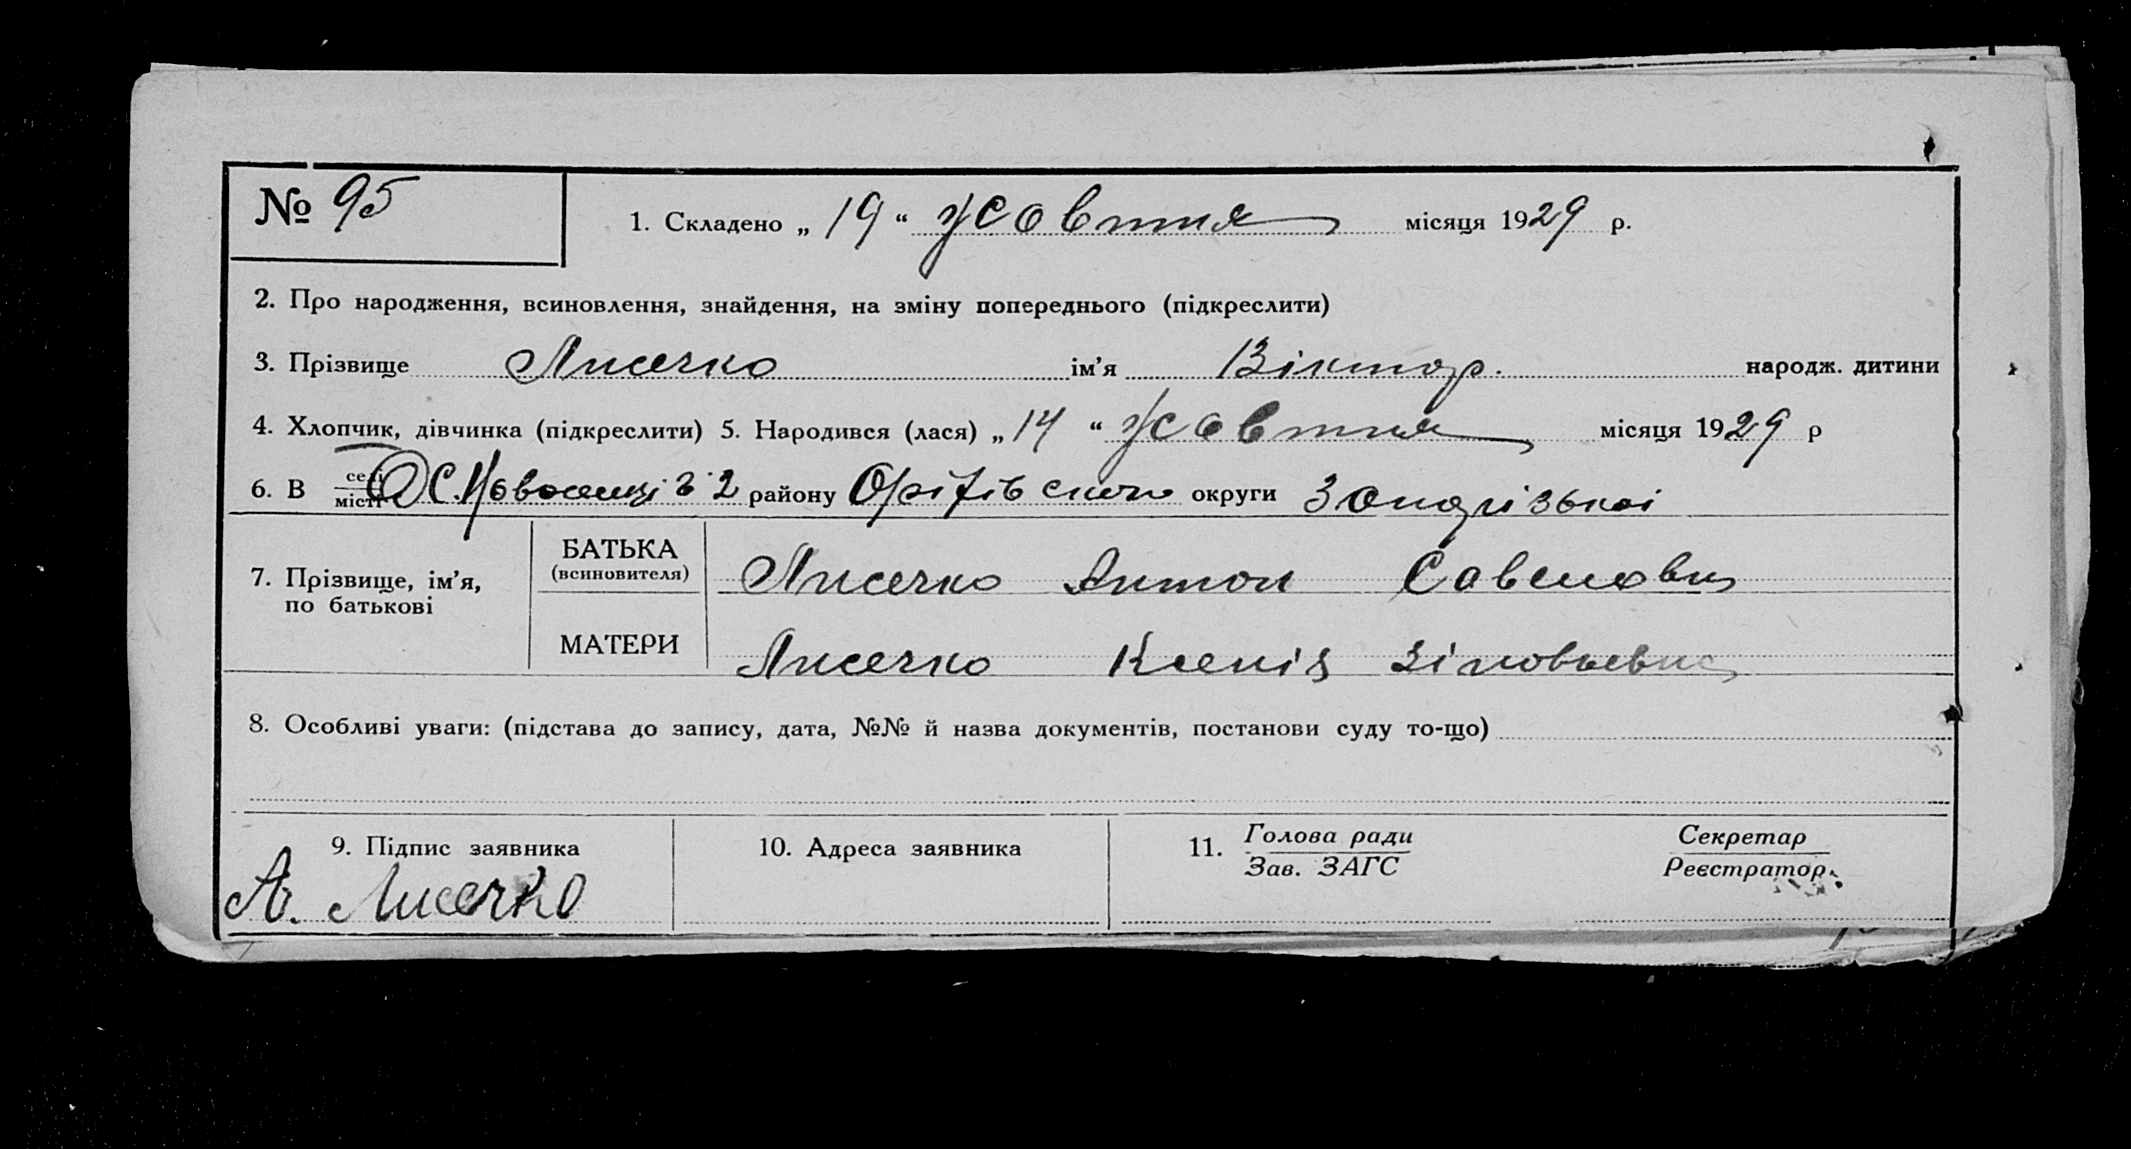 № 95
1. Складено „ 19 “ жовтня місяця 1929 р.
2. Про народження, всиновлення, знайдення, на зміну попереднього (підкреслити)
3. Прізвище Лисечко ім’я Віктор. народж. дитини
4. Хлопчик, дівчинка (підкреслити) 5. Народився (лася) „ 14 “ жовтня місяця 1929 р
6. В селі місті С. № 2 району округи Запорізької
7. Прізвище, ім’я, по батькові
БАТЬКА (всиновителя) Лисечко Антон
МАТЕРИ Лисечко Ксенія
8. Особливі уваги: (підстава до запису, дата, №№ й назва документів, постанови суду то-що)
9. Підпис заявника
А. Лисечко
10. Адреса заявника
11. Голова ради
Зав. ЗАГС
Секретар
Реєстратор